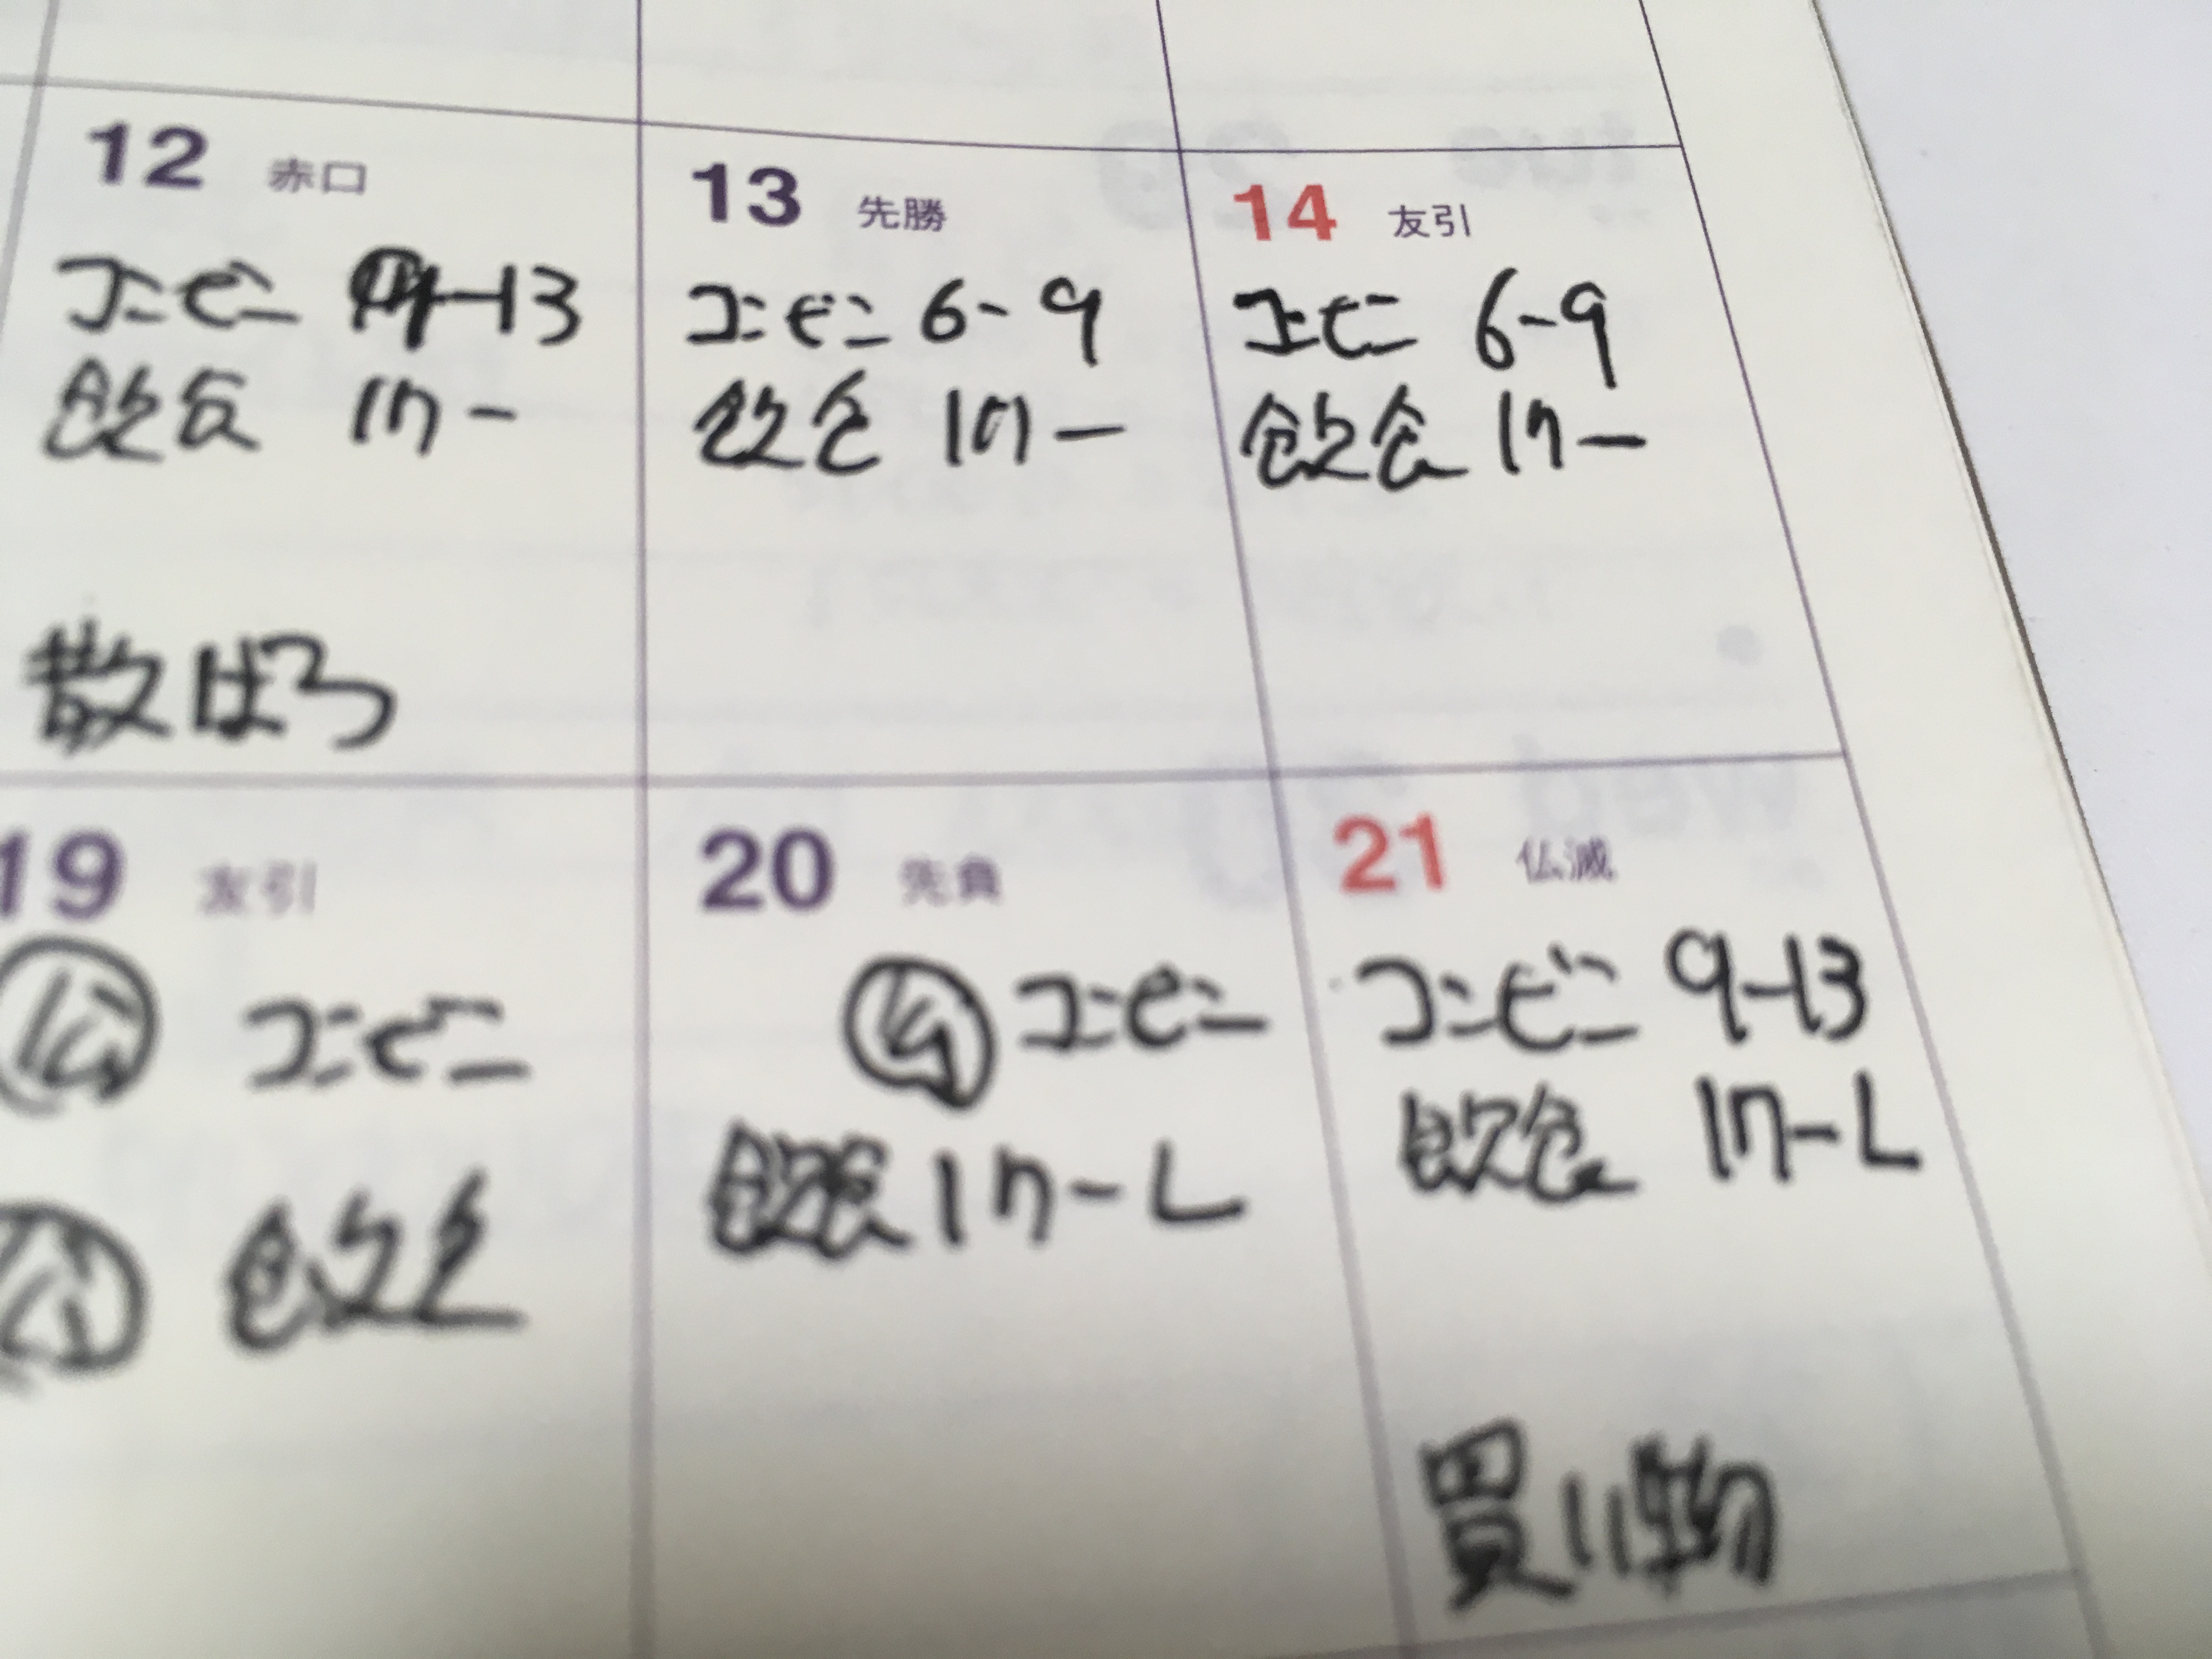 12 赤口
コンビニ 9-13
飲食 17-
散ぱつ
13 先勝
コンビニ 6-9
飲食 17-
14 友引
コンビニ 6-9
飲食 17-
19 友引
コンビニ
飲食
20 先負
コンビニ
飲食 17-L
21 仏滅
コンビニ 9-13
飲食 17-L
買い物